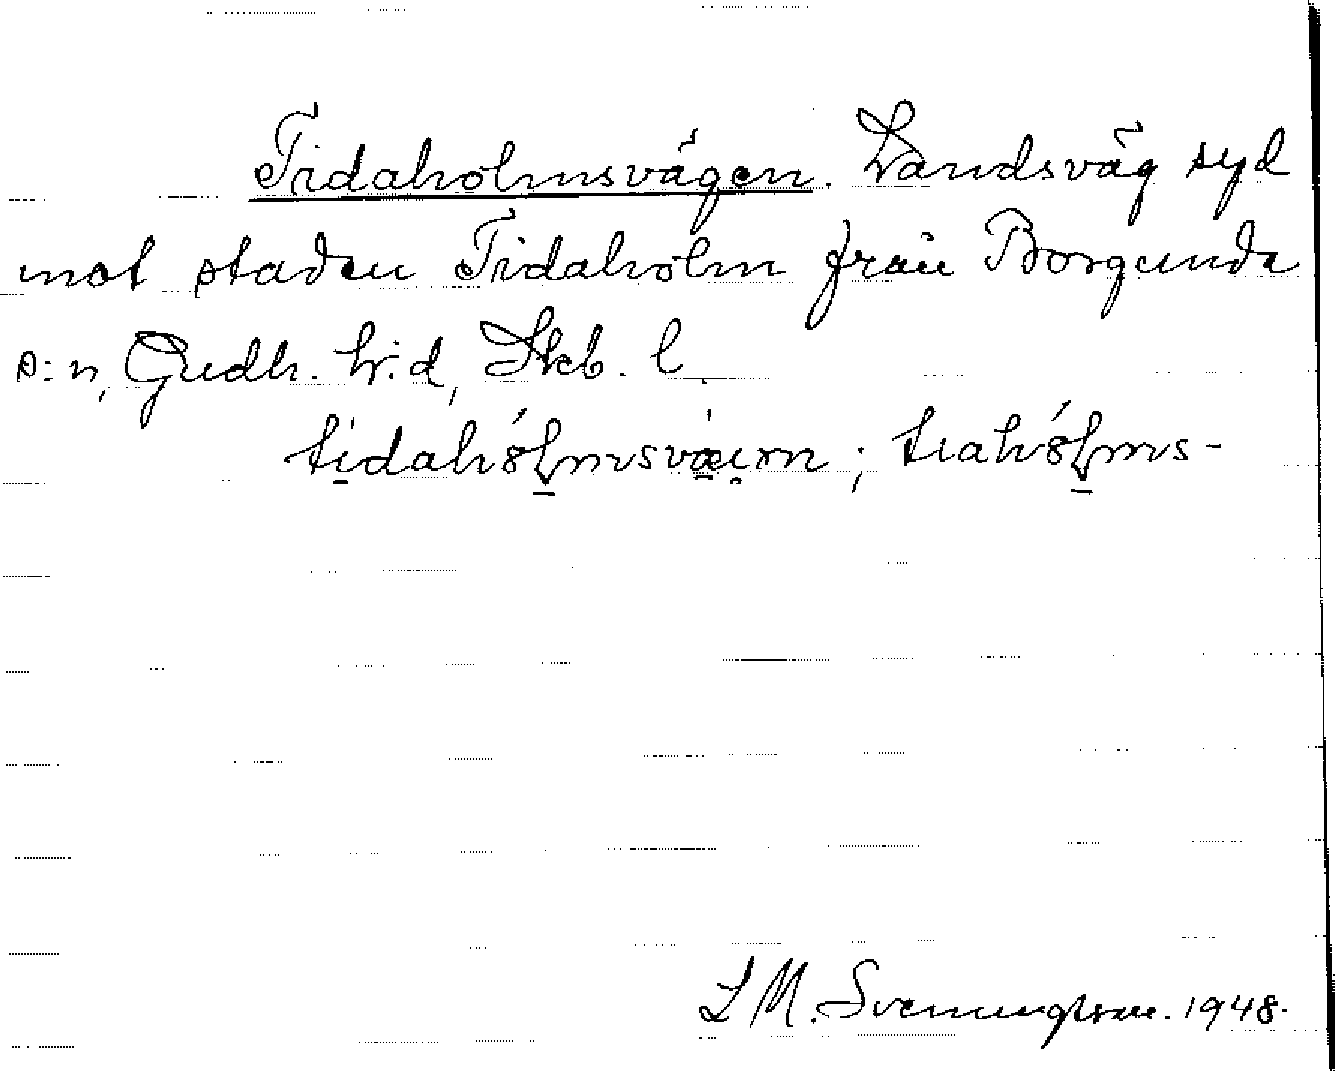 Tidaholmsvägen. Landsväg syd
mot staden Tidaholm från Borgunda
s:n, Gudh. h:d, Skb. l.
tidahólmsvæ̀ıən; tıahólms-
L M. Svenungsson. 1948.